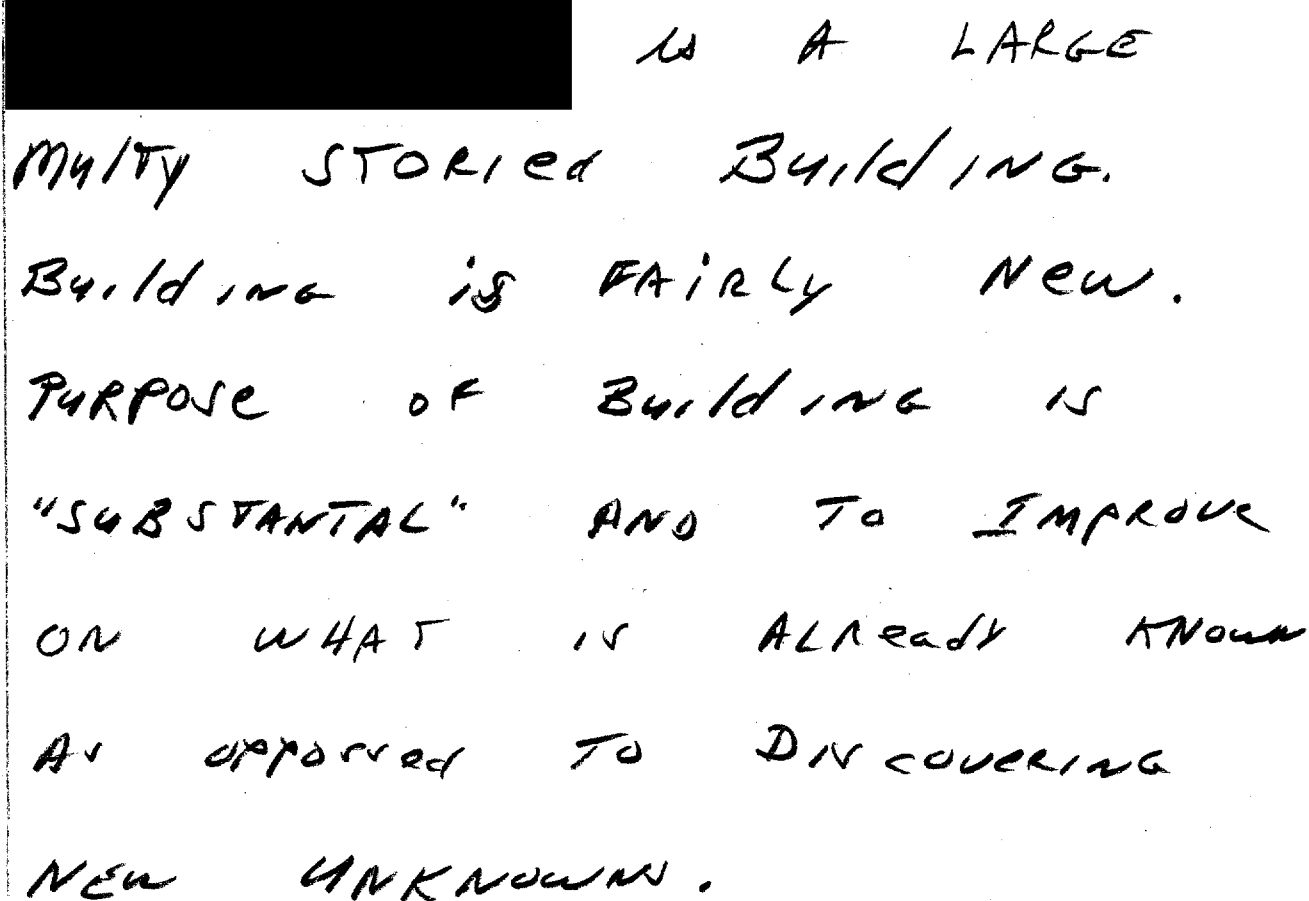 is A LARGE
Multy STORied BuildinG.
BuildinG is FAiRLy New.
PuRPose oF BuildinG is
"SuBSTANTAL" AND To ImpRove
ON WHAT is ALReady KNown
As opposed To DiscoveRinG
NEw UNKNowNs.